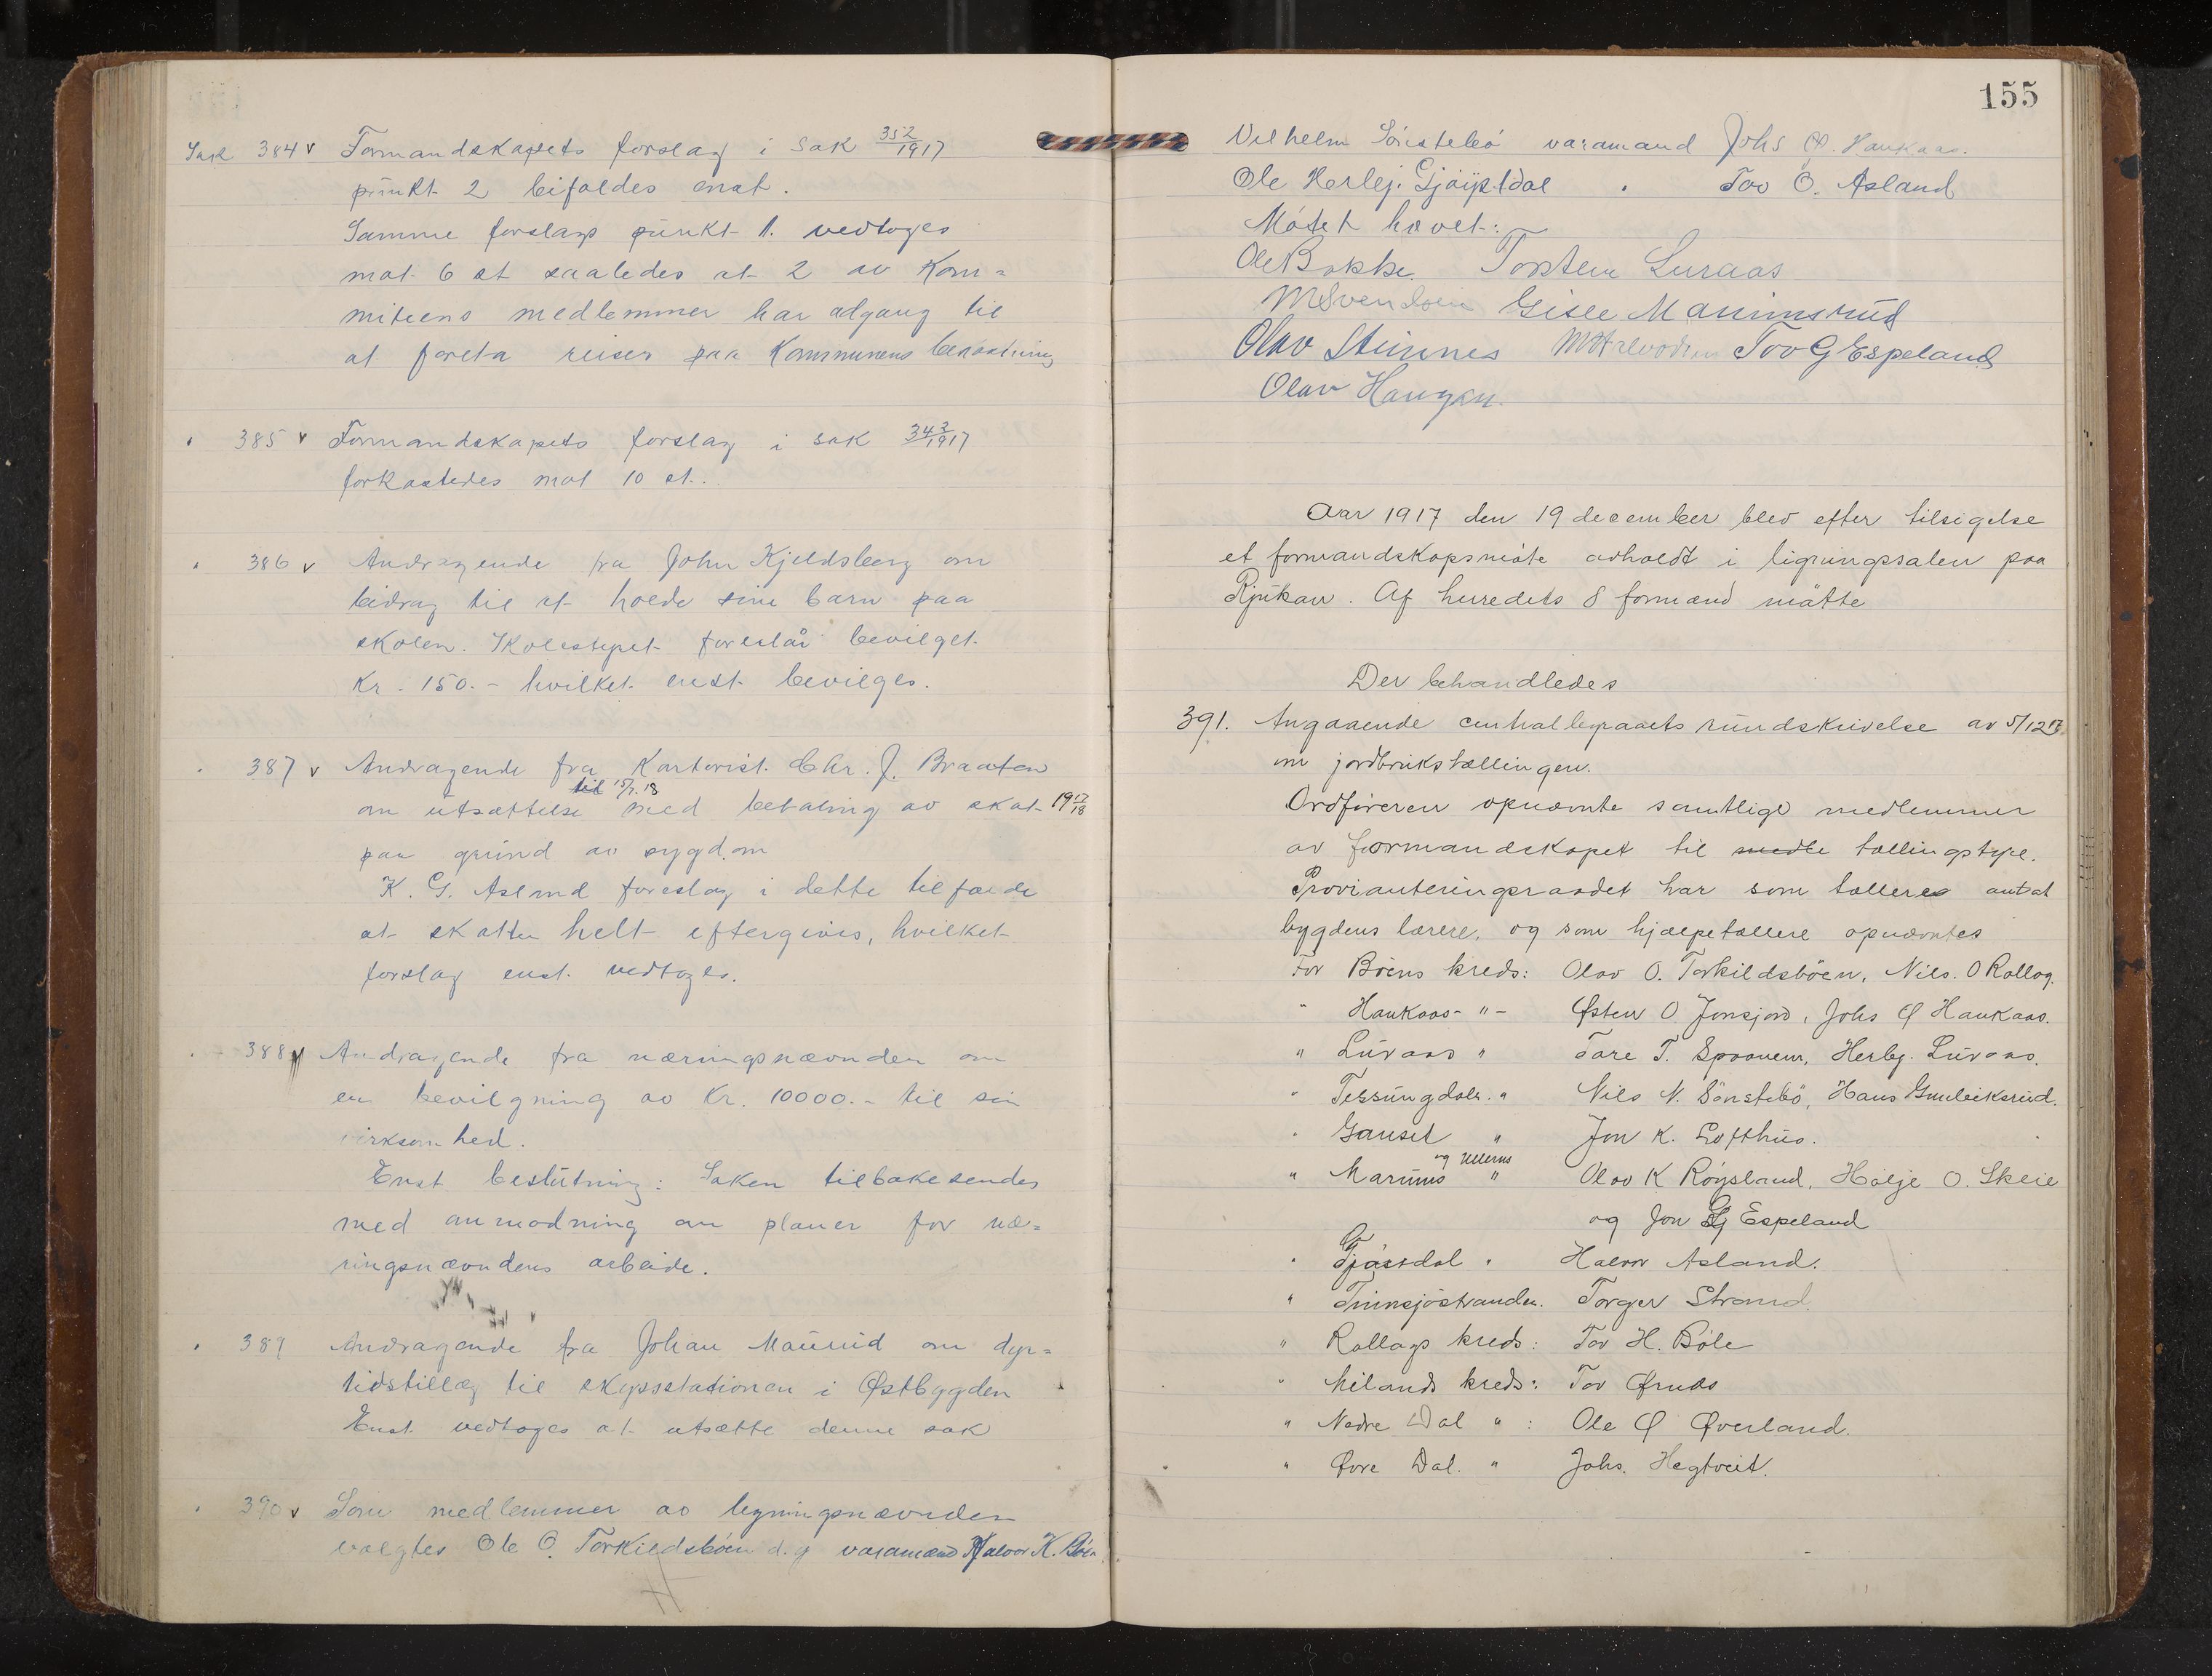 Sak 384 v Formandskapets forslag i sak 352/1917
punkt 2 bifaldes enst.
Samme forslags punkt 1. vedtoges
mot 6 st saaledes at 2 av Kom=
miteens medlemmer har adgang til
at foreta reiser paa Kommunens bekostning
" 385 v Formandskapets forslag i sak 343/1917
forkastedes mot 10 st.
" 386 v Andragende fra John Kjeldsberg om
bidrag til at holde sine barn paa
skolen. Skolestyret foreslår bevilget
Kr. 150.- hvilket enst bevilges.
" 387 v Andragende fra Kontorist. Chr. J. Braaten
om utsættelse til 15/7. 18 med betaling av skat 1917/18
paa grund av sygdom
K. G. Asland foreslog i dette tilfælde
at skatten helt eftergives, hvilket
forslag enst. vedtoges.
" 388 v Andragende fra næringsnævnden om
en bevilgning av Kr. 10000.- til sin
virksomhed.
Enst beslutning: Saken tilbakesendes
med anmodning om planer for næ=
ringsnævndens arbeide.
" 389 Andragende fra Johan Maurud om dyr=
tidstillæg til skysstationen i Østbygden
Enst. vedtoges at utsætte denne sak
" 390 v Som medlemmer av ligningsnævnden
valgtes Ole O. Torkildsbøen d.y varamand Halvor K. Bøen.
155
Vilhelm Sønstebø varamand Johs Ø. Haukaas.
Ole Herlej. Gjøystdal " Tov O. Asland
Møtet hævet:
Ole Bakke Torstein Luraas
M Svendsen Gisle Marumsrud
Olav Steinnes M Halvorsen Tov G Espeland
Olav Haugen.
Aar 1917 den 19 december blev efter tilsigelse
et formandskapsmøte avholdt i ligningssalen paa
Rjukan. Af herredets 8 formænd møtte
Der behandledes
391. Angaaende centralbyraaets rundskrivelse av 5/12 17
om jordbrukstællingen.
Ordføreren opnævnte samtlige medlemmer
av formandskapet til medle tællingstyre.
Provianteringsraadet har som tællere antat
bygdens lærere, og som hjælpetællere opnævntes
For Bøens kreds: Olav O. Torkildsbøen, Nils. O Rollag.
" Haukaas- "- Østen O Jonsjord, Johs Ø Haukaas.
" Luraas " Tore T. Spaanem, Herbj. Luraas.
" Tessungdals. " Nils N. Sønstebø, Hans Gunleiksrud.
" Gauset " Jon K. Lofthus.
" Marums og Ullerns " Olav K Røysland, Hølje O. Skeie
og Jon G Espeland
" Gjøstdal " Halvor Asland.
" Tinnsjøstranden. Torger Strand
" Rollags kreds: Tov H. Bøle
" Milands kreds: Tov Ørnæs
" Nedre Dal " : Ole Ø Øverland.
" Øvre Dal. " Johs. Hegtveit.